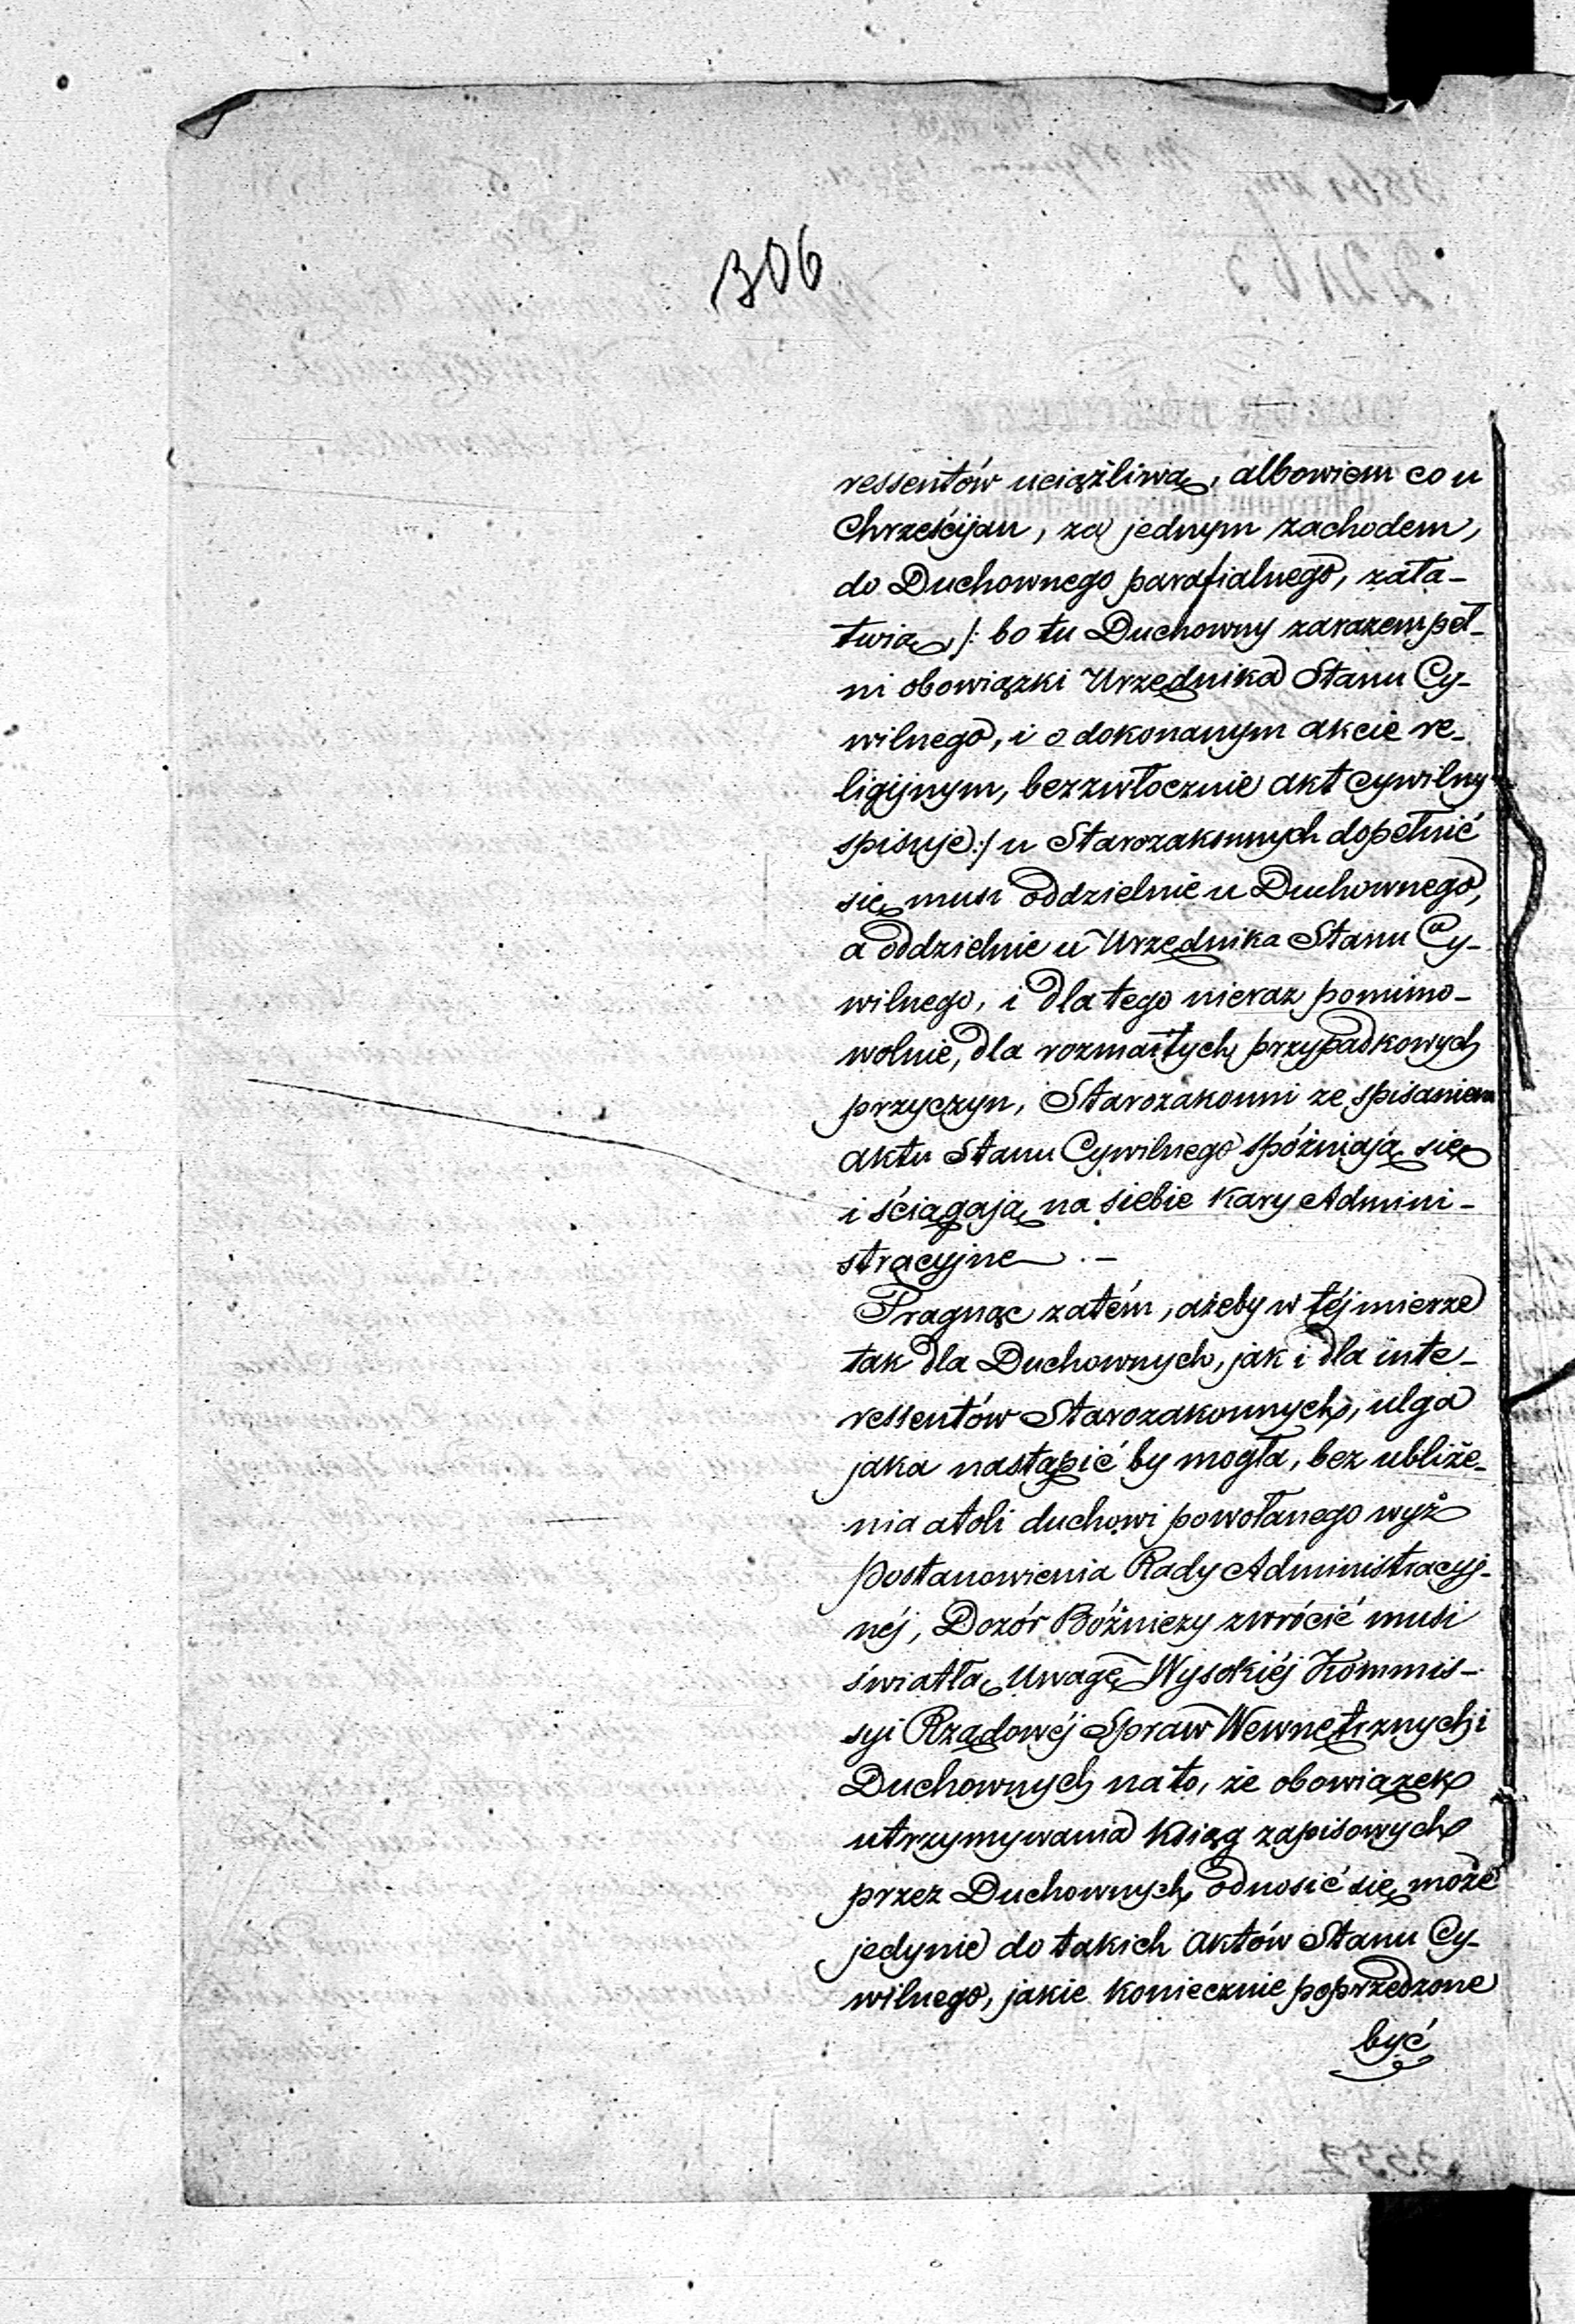 306
ressentów uciążliwą, albowiem co u
Chrześcijan, za jednym zachodem,
do Duchownego parafialnego, zała-
twia /: bo tu Duchowny zarazem peł-
ni obowiązki Urzędnika Stanu Cy-
wilnego, i o dokonanym akcie re-
ligijnym, bezzwłocznie akt cywilny
spisuje :/ u Starozakonnych dopełnić
się musi oddzielnie u Duchownego,
a oddzielnie u Urzędnika Stanu Cy-
wilnego, i dla tego nieraz pomimo-
wolnie, dla rozmaitych przypadkowych
przyczyn, Starozakonni ze spisaniem
aktu Stanu Cywilnego spóźniają się
i ściągają na siebie kary Admini-
stracyjne . –
Pragnąc zatém, ażeby w téj mierze
tak dla Duchownych, jak i dla inte-
ressentów Starozakonnych, ulga
jaka nastąpić by mogła, bez ubliże-
nia atoli duchowi powołanego wyż
postanowienia Rady Administracyj-
néj, Dozór Bóżniczy zwrócić musi
światłą Uwagę Wysokiéj Kommis-
syi Rządowéj Spraw Wewnętrznych i
Duchownych na to, że obowiązek
utrzymywania Ksiąg zapisowych
przez Duchownych, odnosić się może
jedynie do takich aktów Stanu Cy-
wilnego, jakie koniecznie poprzedzone
być